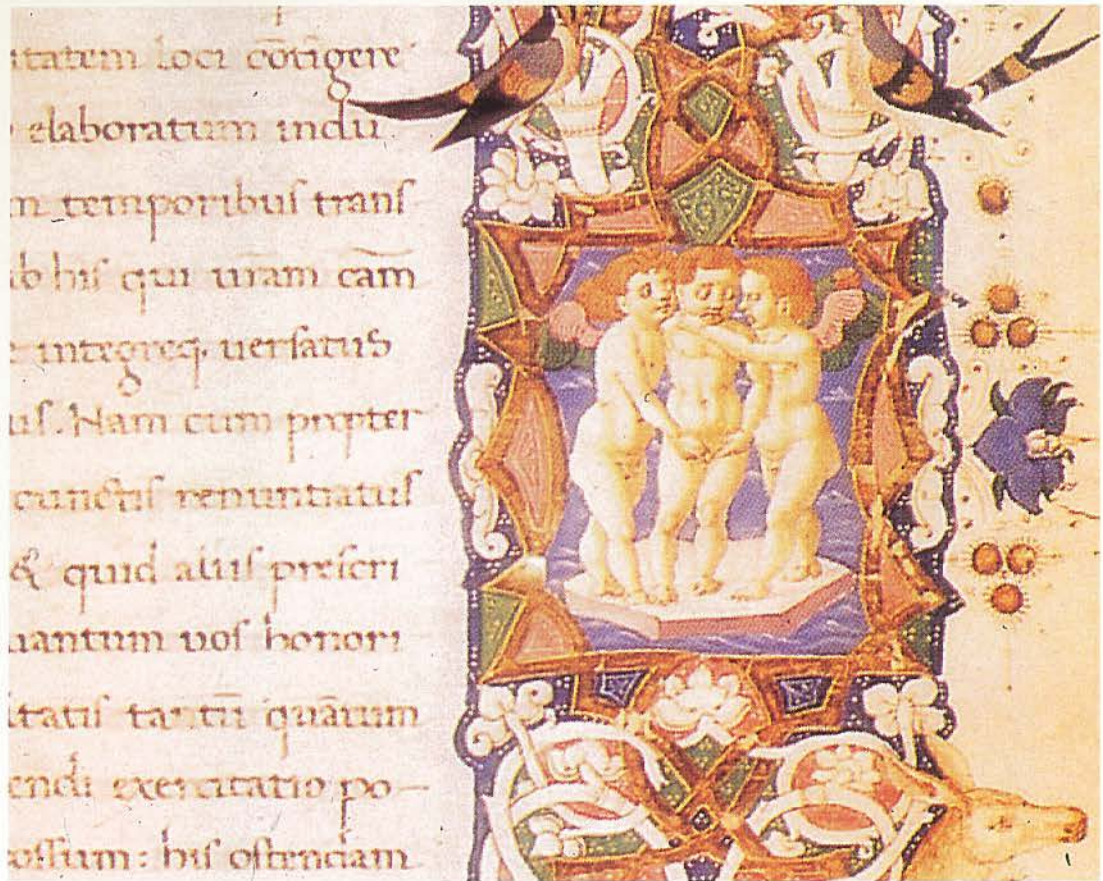 itatem loci cōtigere
elaboratum indu
m temporibuſ tranſ
ab hiſ qui ur̄am cām
integreq; uerſatuſ
uſ. Nam cum propter
cunctiſ renuntiatuſ
& quid aliiſ preſcri
uantum uoſ honori
itatiſ tantū quārum
endi exercitatio po-
oſſum: hiſ oſtendam